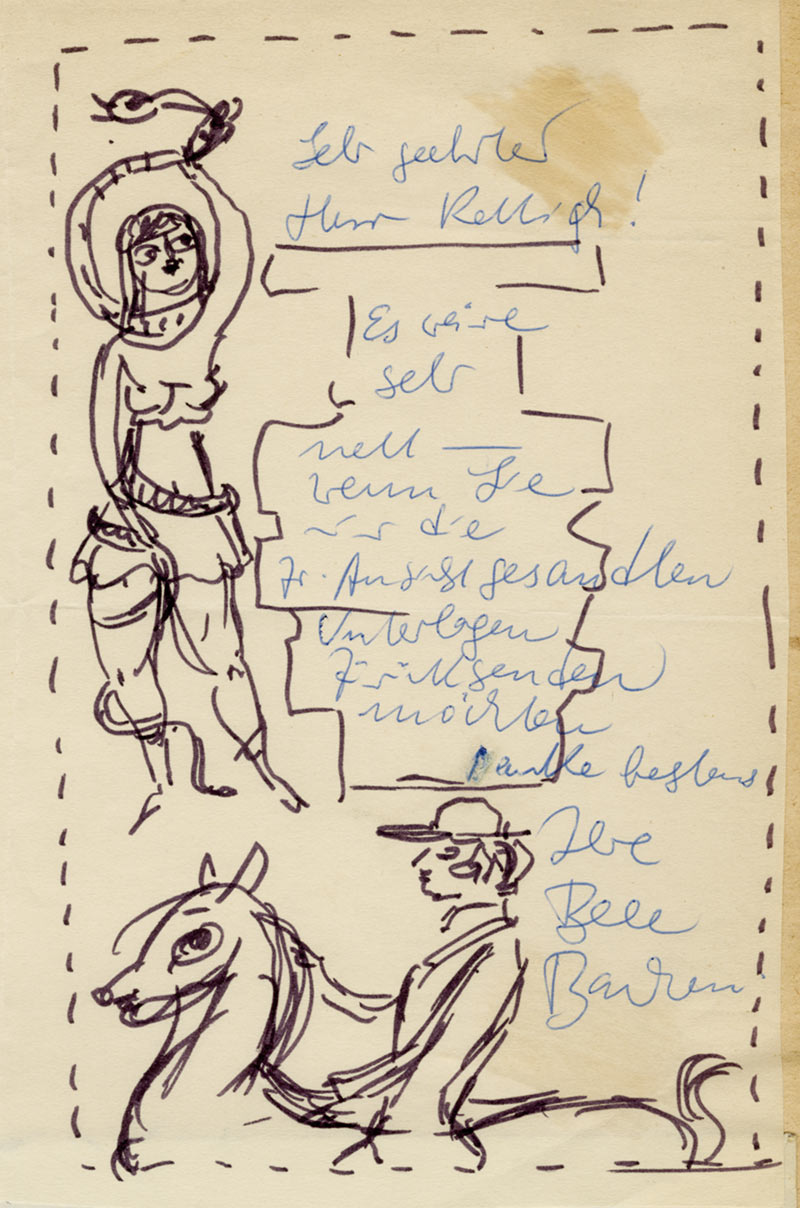 Sehr geehrter
Herr Relligh!
Es wäre
sehr
nett —
wenn Sie
mir die
zr. Ansicht gesandten
Unterlagen
zurücksenden
möchten
Danke bestens
Ihre
Bele
Bachem